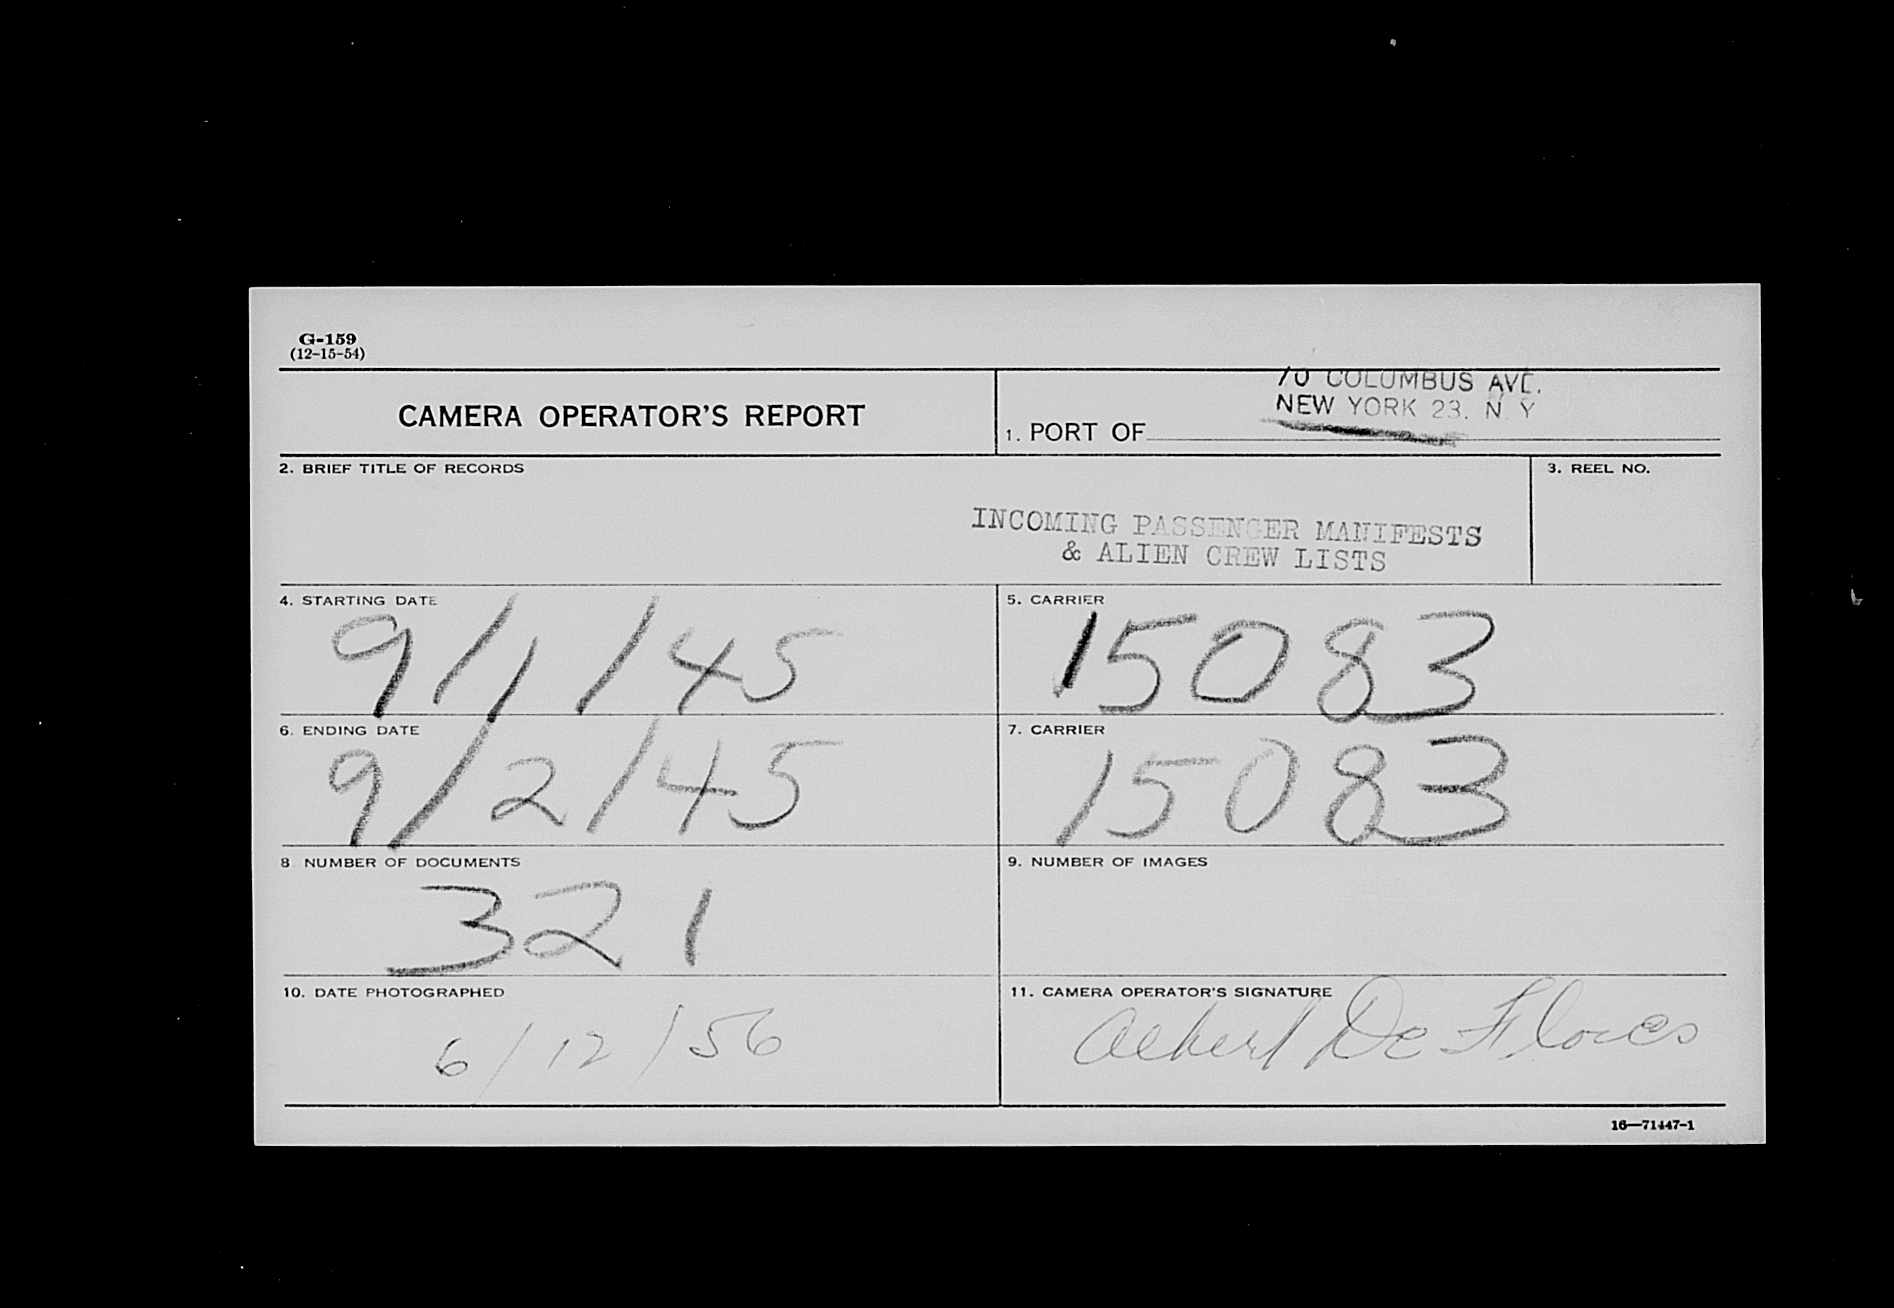 G-159
(12-15-54)
CAMERA OPERATOR'S REPORT
70 COLUMBUS AVE.
NEW YORK 23, N Y
1. PORT OF
2. BRIEF TITLE OF RECORDS
3. REEL NO.
INCOMING PASSENGER MANIFESTS
& ALIEN CREW LISTS
4. STARTING DATE
9/1/45
5. CARRIER
15083
6. ENDING DATE
9/2/45
7. CARRIER
15083
8 NUMBER OF DOCUMENTS
321
9. NUMBER OF IMAGES
10. DATE PHOTOGRAPHED
6/12/56
11. CAMERA OPERATOR'S SIGNATURE
Albert De Flores
16—71447-1